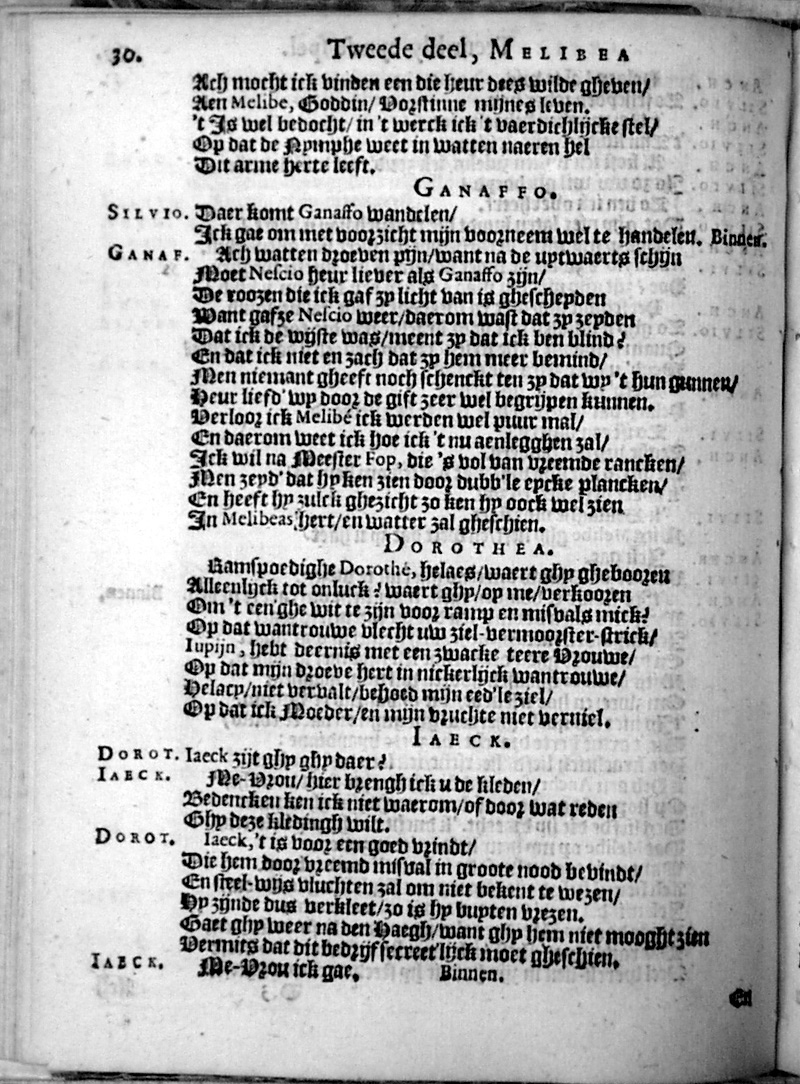 30. Tweede deel, MELIBEA
Ach mocht ick vinden een die heur dees wilde gheven/
Aen Melibe, Goddin/ Vorstinne mijnes leven.
't Is wel bedocht/ in 't werck ick 't vaerdichlijcke stel/
Op dat de Nymphe weet in watten naeren hel
Dit arme herte leeft.
GANAFFO.
SILVIO. Daer komt Ganaffo wandelen/
Ick gae om met voorzicht mijn voorneem wel te handelen. Binnen.
GANAF. Ach watten droeven pijn/ want na de uytwaerts schijn
Moet Nescio heur liever als Ganaffo zijn/
De roozen die ick gaf zy licht van is ghescheyden
Want gafze Nescio weer/ daerom wast dat zy zeyden
Dat ick de wijste was/ meent zy dat ick ben blind?
En dat ick niet en zach dat zy hem meer bemind/
Men niemant gheeft noch schenckt ten zy dat wy 't hun gunnen/
Heur liefd' wy door de gift zeer wel begrijpen kunnen.
Verloor ick Melibé ick werden wel puur mal/
En daerom weet ick hoe ick 't nu aenlegghen zal/
Ick wil na Meester Fop, die 's vol van vreemde rancken/
Men zeyd' dat hy ken zien door dubb'le eycke plancken/
En heeft hy zulck ghezicht zo ken hy oock wel zien
In Melibeas hert/ en watter zal gheschien.
DOROTHEA.
Ramspoedighe Dorothé, helaes/ waert ghy ghebooren
Alleenlijck tot onluck? waert ghy/ op me/ verkooren
Om 't een'ghe wit te zijn voor ramp en misvals mick?
Op dat wantrouwe vlecht uw ziel-vermoorster-strick/
Iupijn, hebt deernis met een zwacke teere Vrouwe/
Op dat mijn droeve hert in nickerlijck wantrouwe/
Helacy/ niet vervalt/ behoed mijn eed'le ziel/
Op dat ick Moeder/ en mijn vruchte niet verniel.
IAECK.
DOROT. Iaeck zijt ghy ghy daer?
IAECK. Me-Vrou/ hier brengh ick u de kleden/
Bedencken ken ick niet waerom/ of door wat reden
Ghy deze kledingh wilt.
DOROT. Iaeck, 't is voor een goed vrindt/
Die hem door vreemd misval in groote nood bevindt/
En steel-wijs vluchten zal om niet bekent te wezen/
Hy zijnde dus verkleet/ zo is hy buyten vrezen.
Gaet ghy weer na den Haegh/ want ghy hem niet mooght zien
Vermits dat dit bedrijf secreet'lijck moet gheschien.
IAECK. Me-Vrou ick gae. Binnen.
En